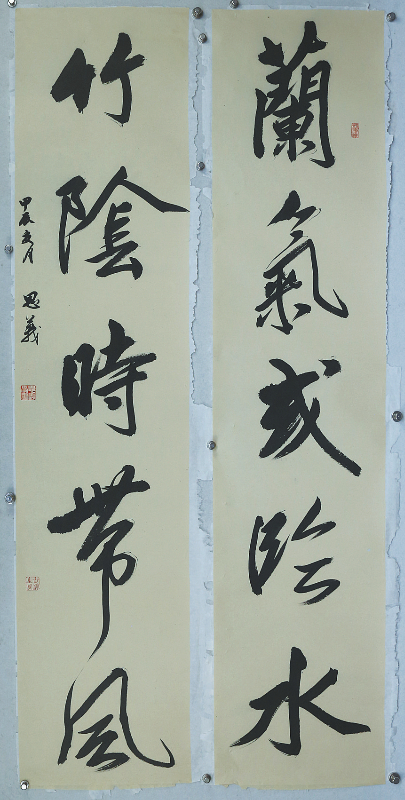 蘭氣或臨水
竹陰時帶風
甲辰五月 思義